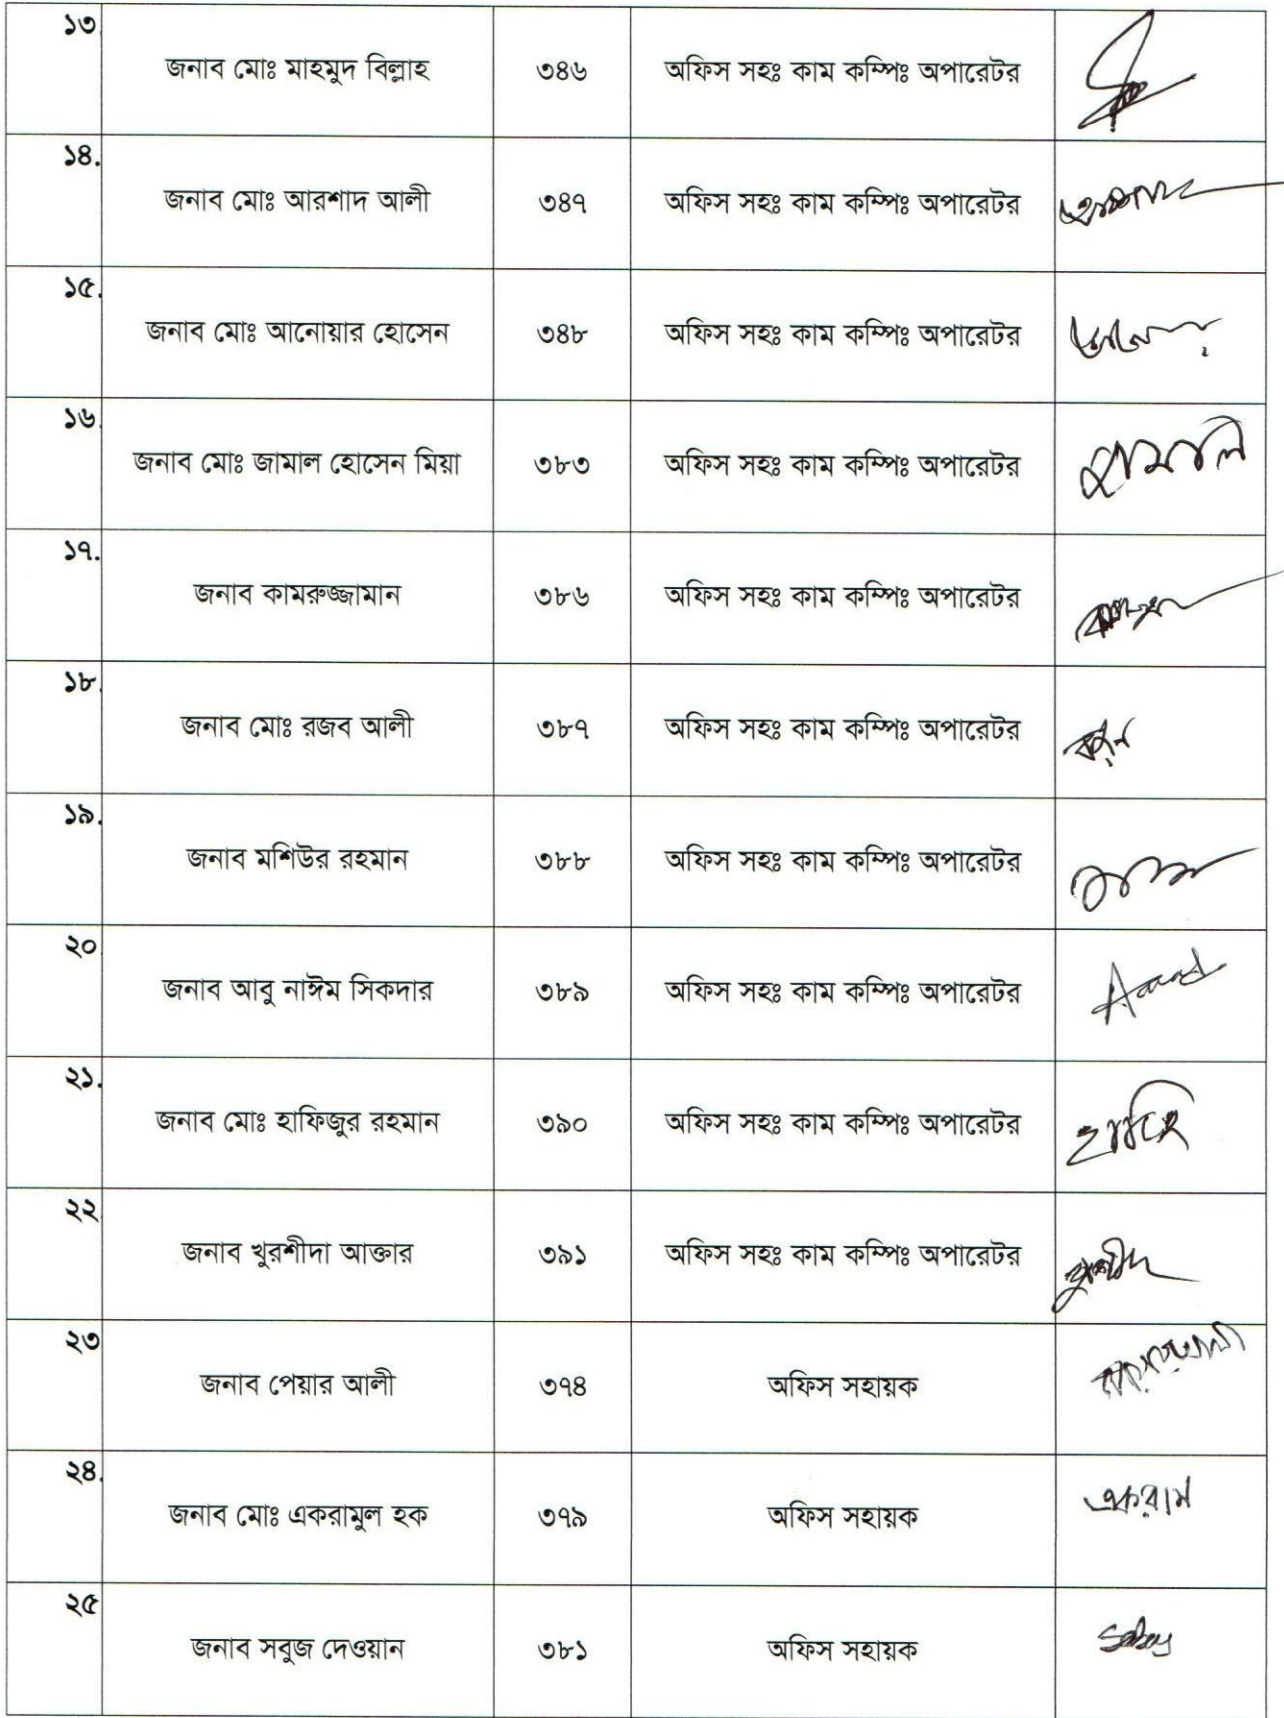 ১৩
জনাব মোঃ মাহমুদ বিল্লাহ ৩৪৬ অফিস সহঃ কাম কম্পিঃ অপারেটর
১৪.
জনাব মোঃ আরশাদ আলী ৩৪৭ অফিস সহঃ কাম কম্পিঃ অপারেটর
১৫.
জনাব মোঃ আনোয়ার হোসেন ৩৪৮ অফিস সহঃ কাম কম্পিঃ অপারেটর
১৬.
জনাব মোঃ জামাল হোসেন মিয়া ৩৮৩ অফিস সহঃ কাম কম্পিঃ অপারেটর
১৭.
জনাব কামরুজ্জামান ৩৮৬ অফিস সহঃ কাম কম্পিঃ অপারেটর
১৮.
জনাব মোঃ রজব আলী ৩৮৭ অফিস সহঃ কাম কম্পিঃ অপারেটর
১৯.
জনাব মশিউর রহমান ৩৮৮ অফিস সহঃ কাম কম্পিঃ অপারেটর
২০
জনাব আবু নাঈম সিকদার ৩৮৯ অফিস সহঃ কাম কম্পিঃ অপারেটর
২১.
জনাব মোঃ হাফিজুর রহমান ৩৯০ অফিস সহঃ কাম কম্পিঃ অপারেটর
২২
জনাব খুরশীদা আক্তার ৩৯১ অফিস সহঃ কাম কম্পিঃ অপারেটর
২৩
জনাব পেয়ার আলী ৩৭৪ অফিস সহায়ক
২৪.
জনাব মোঃ একরামুল হক ৩৭৯ অফিস সহায়ক একরাম
২৫
জনাব সবুজ দেওয়ান ৩৮১ অফিস সহায়ক